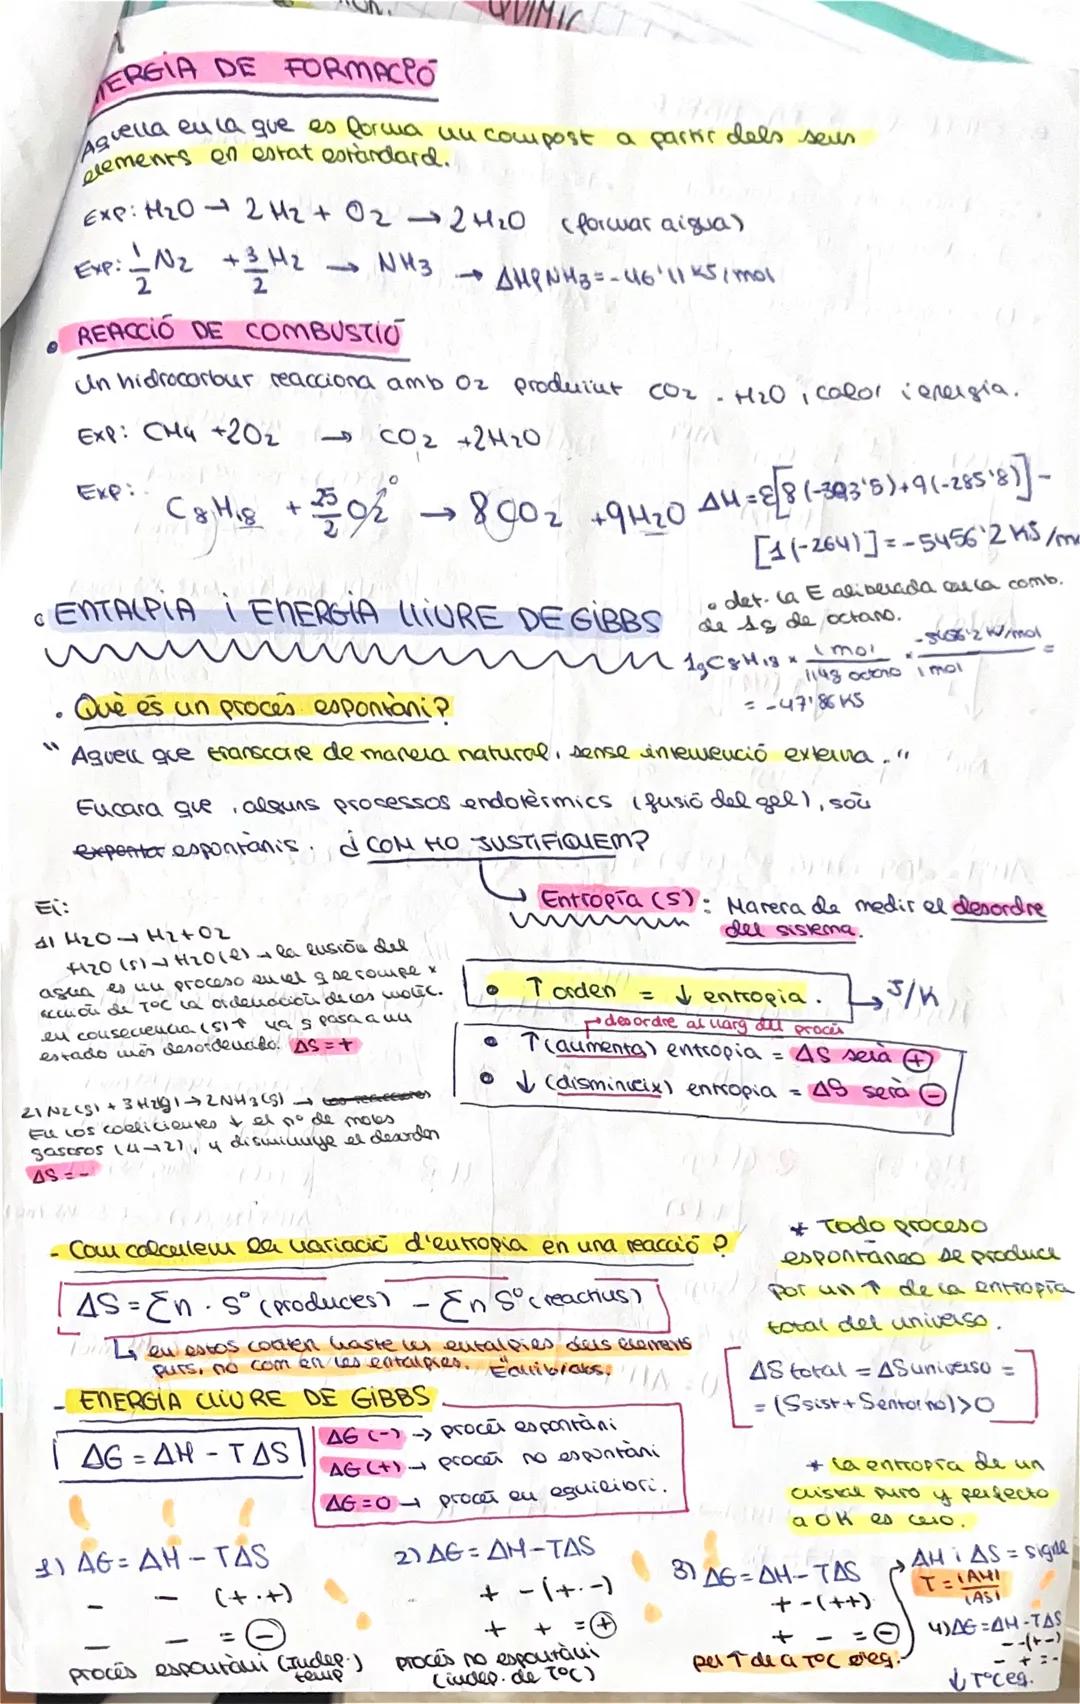 QUÍMIC
NERGIA DE FORMACIÓ
Aquella en la que es forma un compost a partir dels seus
elements en estat estàndard.
Exp: H2O → 2H2 + O2 → 2H2O (formar aigua)
Exp: 1/2 N2 + 3/2 H2 → NH3 → ΔHf NH3 = -46'11 KJ/mol
• REACCIÓ DE COMBUSTIÓ
Un hidrocarbur reacciona amb O2 produint CO2 - H2O, calor i energia.
Exp: CH4 + 2O2 → CO2 + 2H2O
Exp: C8H18 + 25/2 O2 → 8CO2 + 9H2O ΔH = Σ[8(-393'5)+9(-285'8)] -
[1(-264)] = -5456'2 KJ/mo
• det. la E alliberada en la comb.
de 1g de octano.
1g C8H18 × 1 mol / 114g octano × -5456'2 KJ/mol / 1 mol =
= -47'86 KJ
• ENTALPIA i ENERGIA LLIURE DE GIBBS
• Què és un procés espontàni?
"Aquell que transcorre de manera natural, sense intervenció externa."
Encara que, alguns processos endotèrmics (fusió del gel), són
espontànis. ¿COM HO JUSTIFIQUEM?
Entropía (S): Manera de medir el desordre
del sistema.
Ej:
1) H2O → H2 + O2
H2O (s) → H2O (l) → la fusión del
agua es un proceso en el q se rompe x
acción de TºC la ordenación de las molèc.
en consecuencia (S)↑ ya q pasa a un
estado més desordenado. ΔS = +
2) N2(g) + 3H2(g) → 2NH3(g) → las reacciones
En los coeficientes ↓ el nº de moles
gaseosos (4→2), y disminuye el desorden
ΔS = -
• ↑ orden = ↓ entropia. → J/K
→ desordre al llarg del procés
• ↑ (aumenta) entropia = ΔS serà ⊕
• ↓ (disminueix) entropia = ΔS serà ⊖
- Com calculem la variació d'entropia en una reacció?
ΔS = Σn · Sº (productes) - Σn Sº (reactius)
↳ en estos coefen haste les entalpies dels elements
purs, no com en les entalpies.
* Todo proceso
espontáneo se produce
por un ↑ de la entropía
total del universo.
ΔS total = ΔSuniverso =
= (Ssist + Sentorno) > 0
- ENERGIA LLIURE DE GIBBS
ΔG = ΔH - TΔS
ΔG (-) → procés espontàni
ΔG (+) → procés no espontàni
ΔG = 0 → procés en equilibri.
* la entropía de un
cristal puro y perfecto
a 0K es cero.
1) ΔG = ΔH - TΔS
- - (+·+)
- - = ⊖
procés espontàni (Indep.)
temp
2) ΔG = ΔH - TΔS
+ - (+·-)
+ + = ⊕
procés no espontàni
(indep. de TºC)
3) ΔG = ΔH - TΔS
+ - (++)
+ - = ⊖
per ↑ de a TºC
ΔH i ΔS = signe
T = |ΔH| / |ΔS|
4) ΔG = ΔH - TΔS
- - (+-)
- + = -
↓ TºC eq.